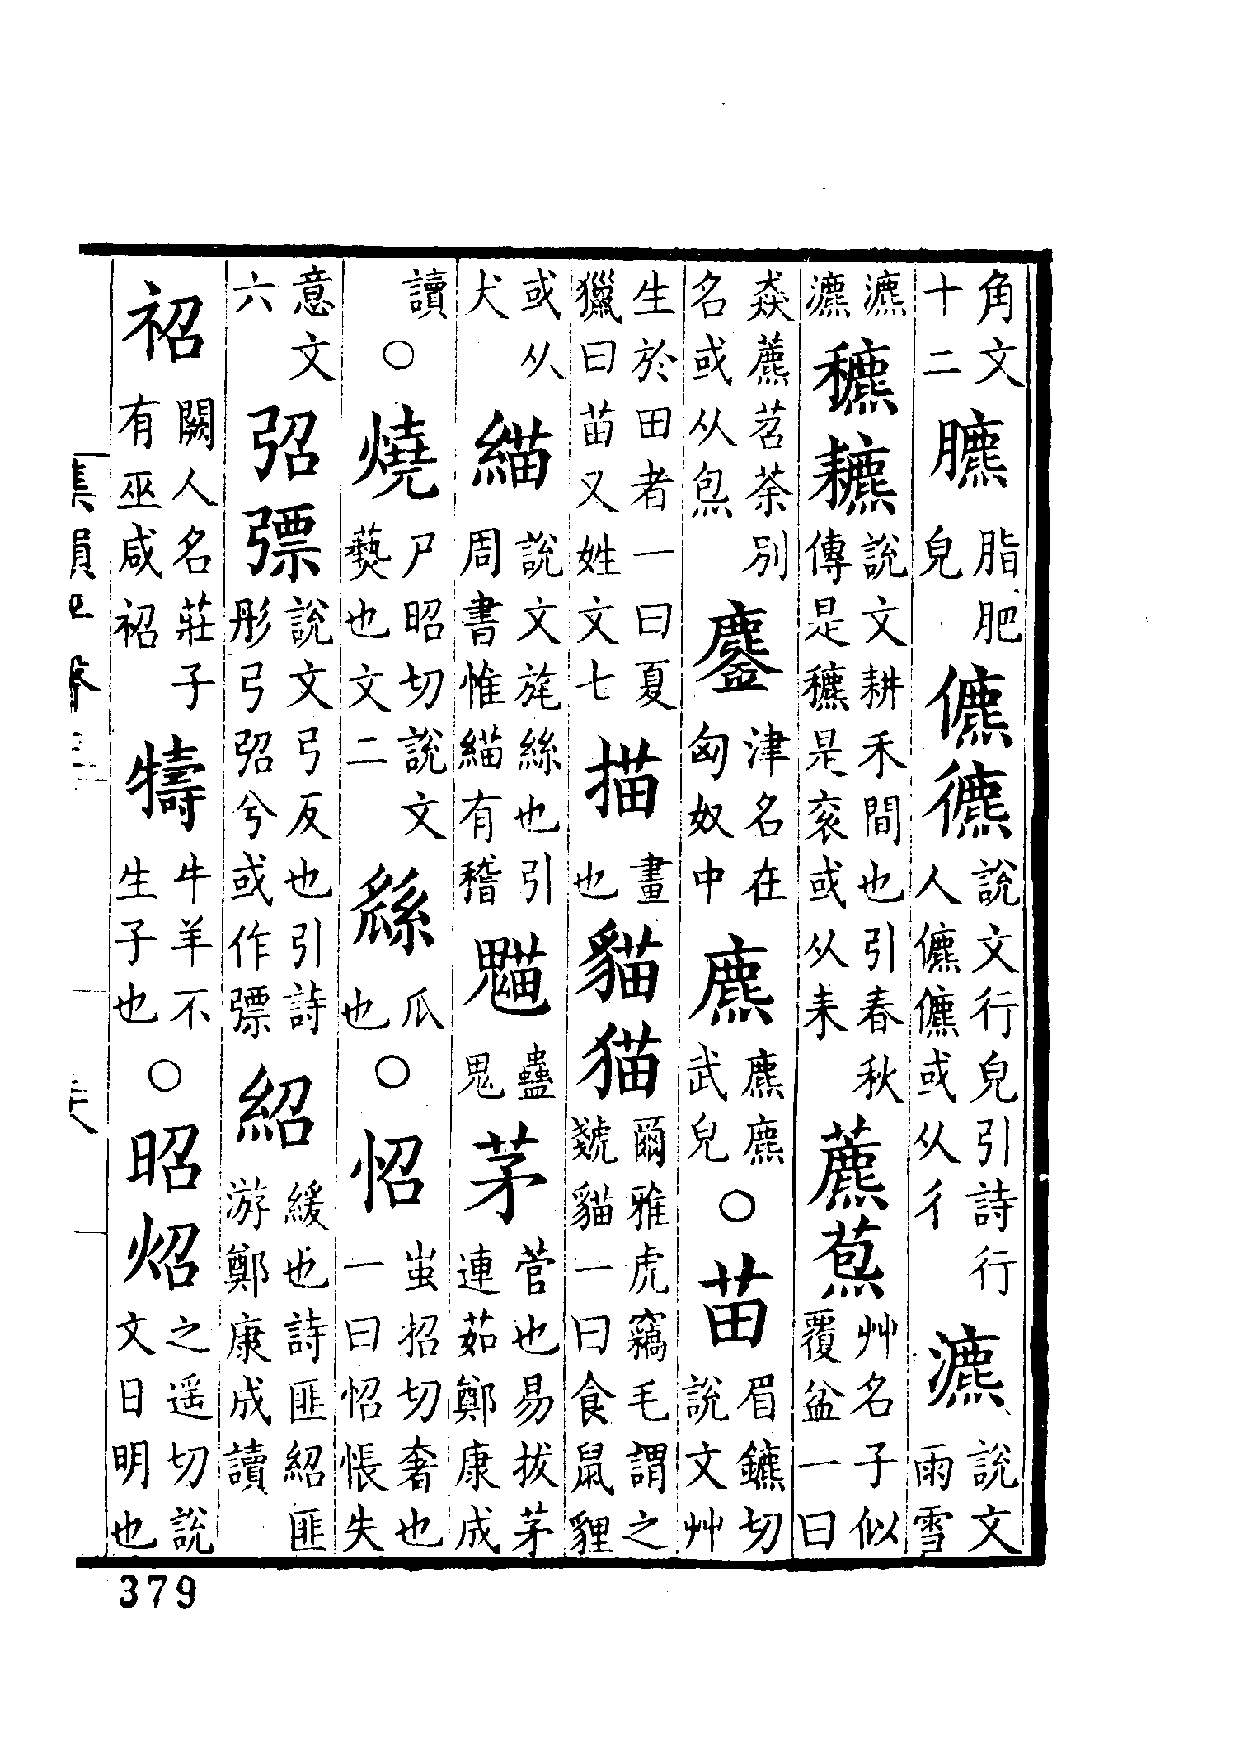 角文十二臕脂肥皃儦說文行皃引詩行人儦儦或从彳瀌說文雨雪
瀌瀌穮說文耕禾間也引春秋傳是穮是衮或从耒藨艸名子似覆盆一曰
猋藨苕荼別名或从炰津名在匈奴中麃麃麃武皃○苗眉鑣切說文艸
生於田者一曰夏獵曰苗又姓文七描畫也貓猫爾雅虎竊毛謂之虦貓一曰食鼠貍
或从犬緢說文旄絲也引周書惟緢有稽蠱鬼茅菅也易拔茅連茹鄭康成
讀○燒尸昭切說文爇也文二瓜也○怊蚩招切奢也一曰怊悵失
意文六弨說文弓反也引詩彤弓弨兮或作紹緩也詩匪紹匪游鄭康成讀
袑闕人名莊子有巫咸袑牛羊不生子也○昭炤之遥切說文日明也
集韻平聲三
379